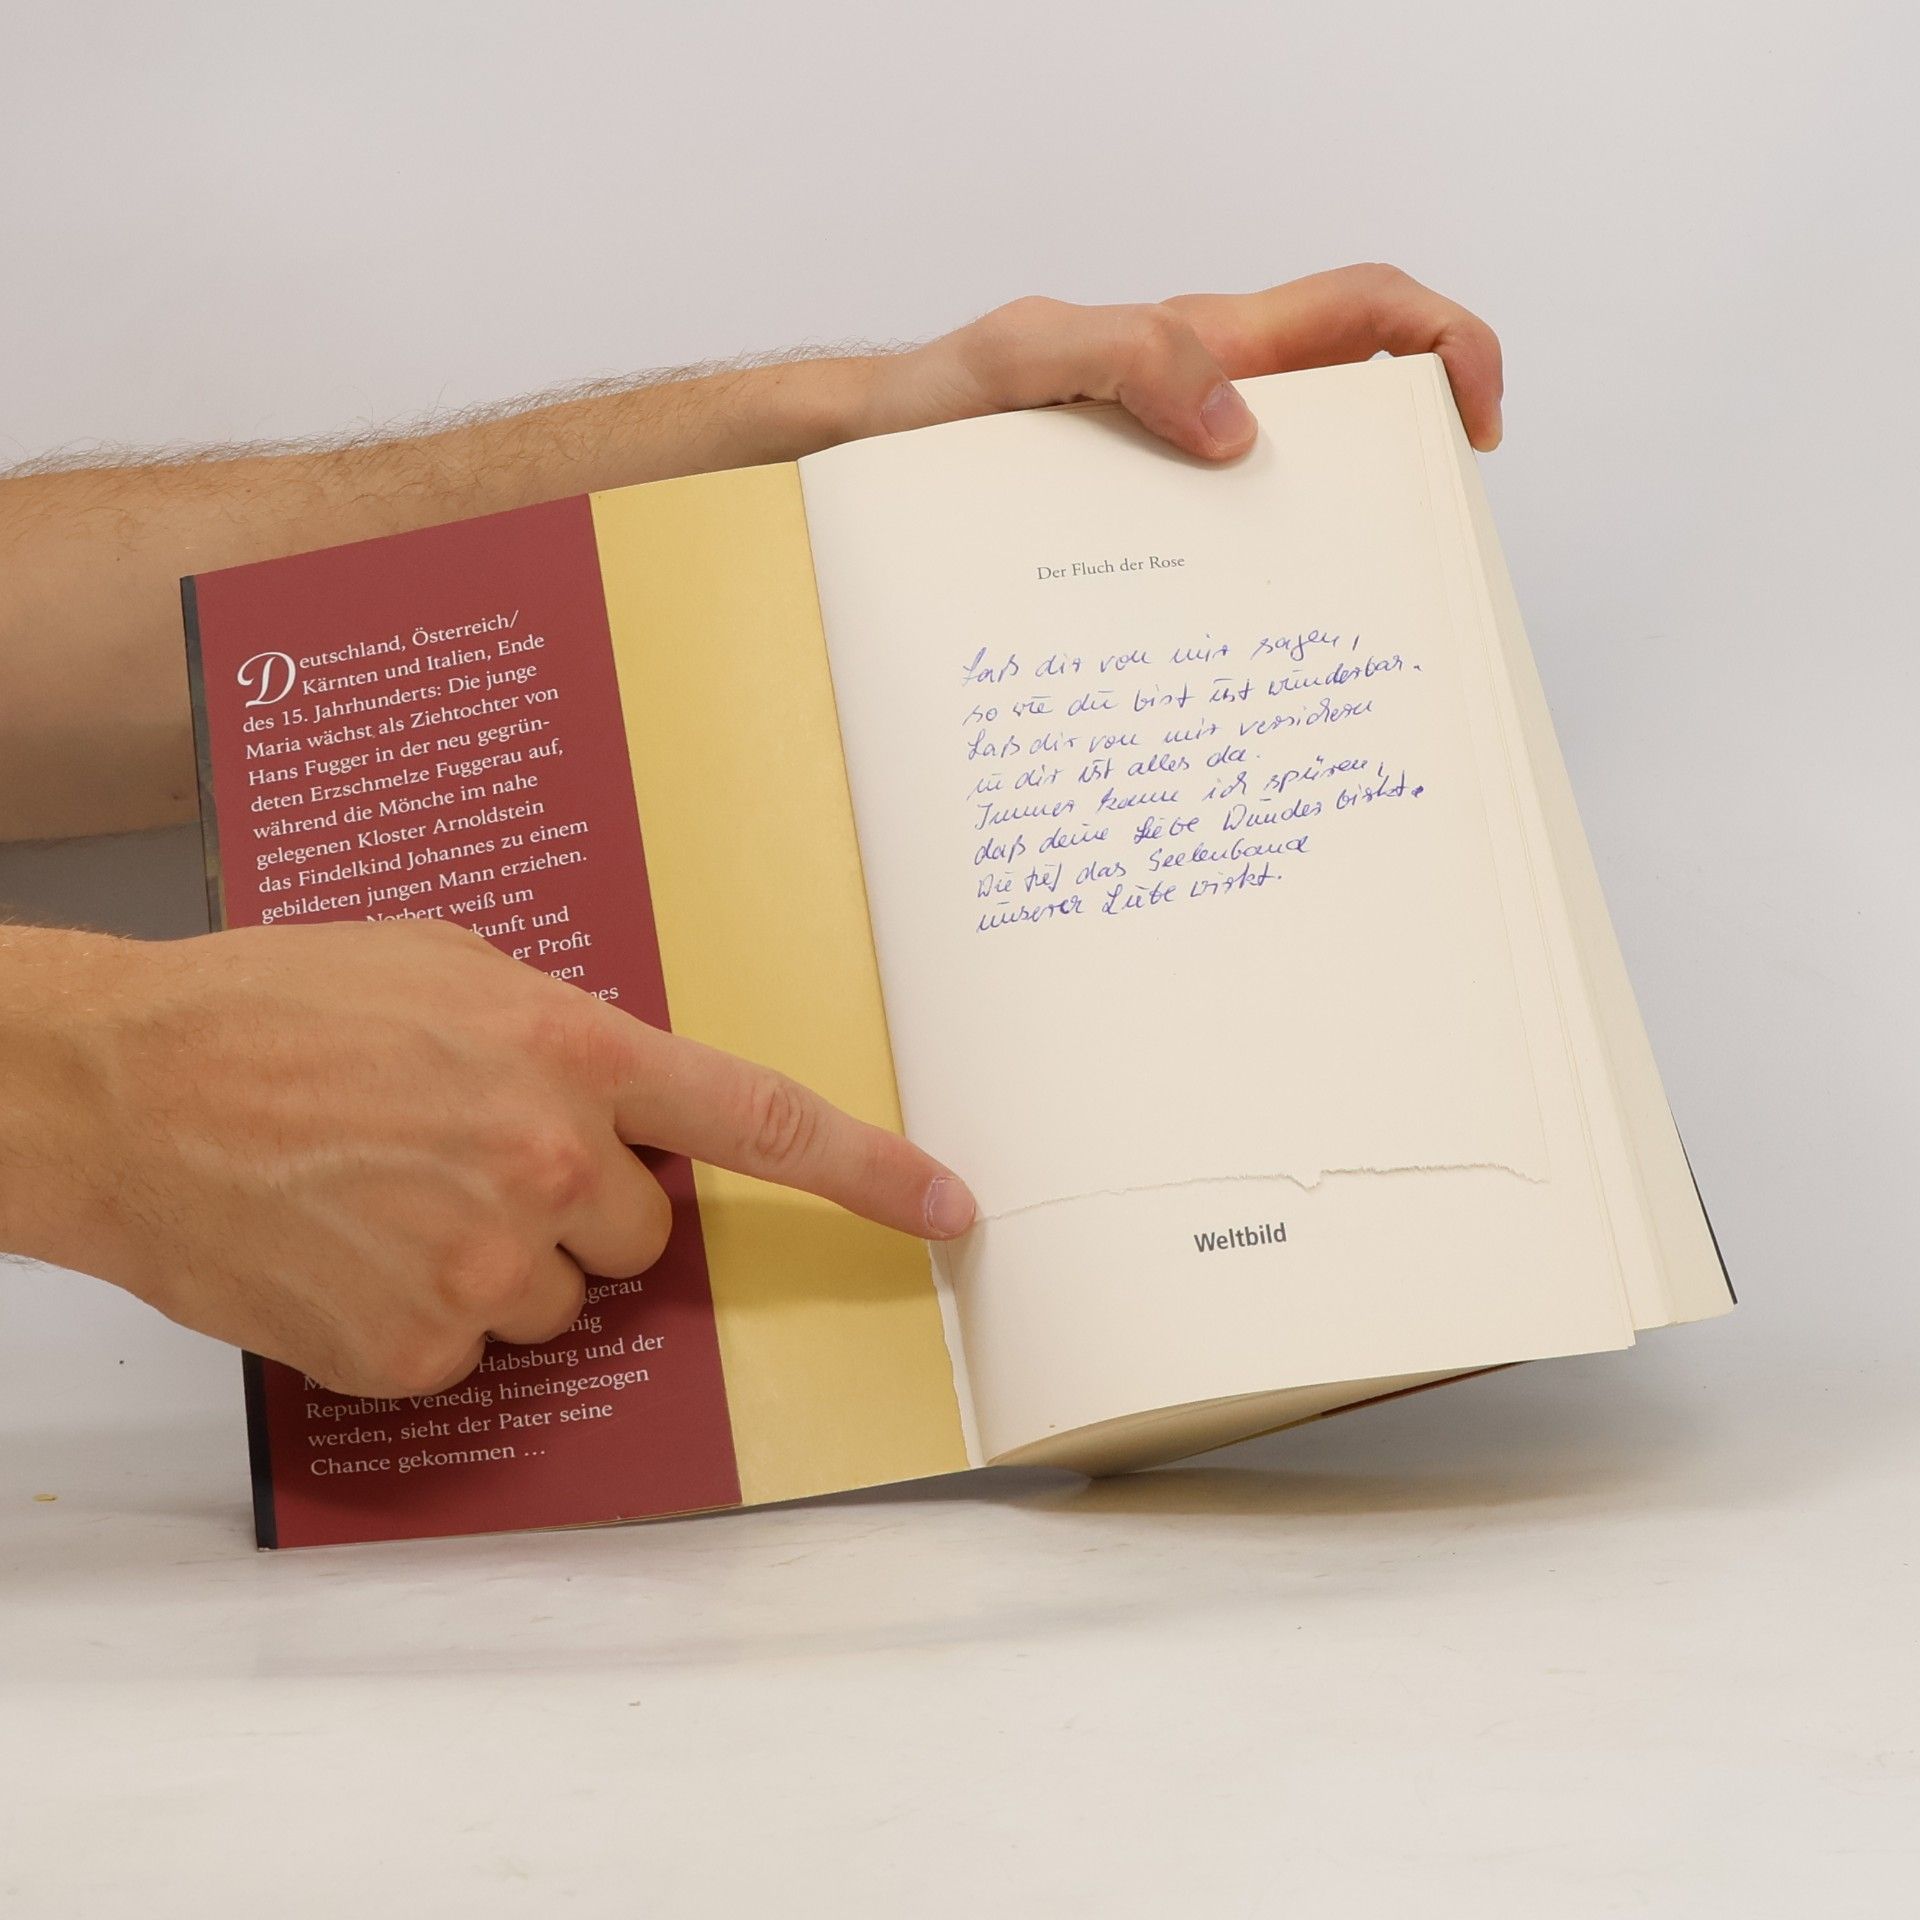 Deutschland, Österreich/
Kärnten und Italien, Ende
des 15. Jahrhunderts: Die junge
Maria wächst als Ziehtochter von
Hans Fugger in der neu gegrün-
deten Erzschmelze Fuggerau auf,
während die Mönche im nahe
gelegenen Kloster Arnoldstein
das Findelkind Johannes zu einem
gebildeten jungen Mann erziehen.
Norbert weiß um
und
er Profit
Habsburg und der
Republik Venedig hineingezogen
werden, sieht der Pater seine
Chance gekommen ...
Der Fluch der Rose
Laß dir von mir sagen,
so wie du bist ist wunderbar.
Laß dir von mir versichern
in dir ist alles da.
Immer kann ich spüren,
daß deine Liebe Wunder birkt.
Wie tief das Seelenband
unserer Liebe wirkt.
Weltbild